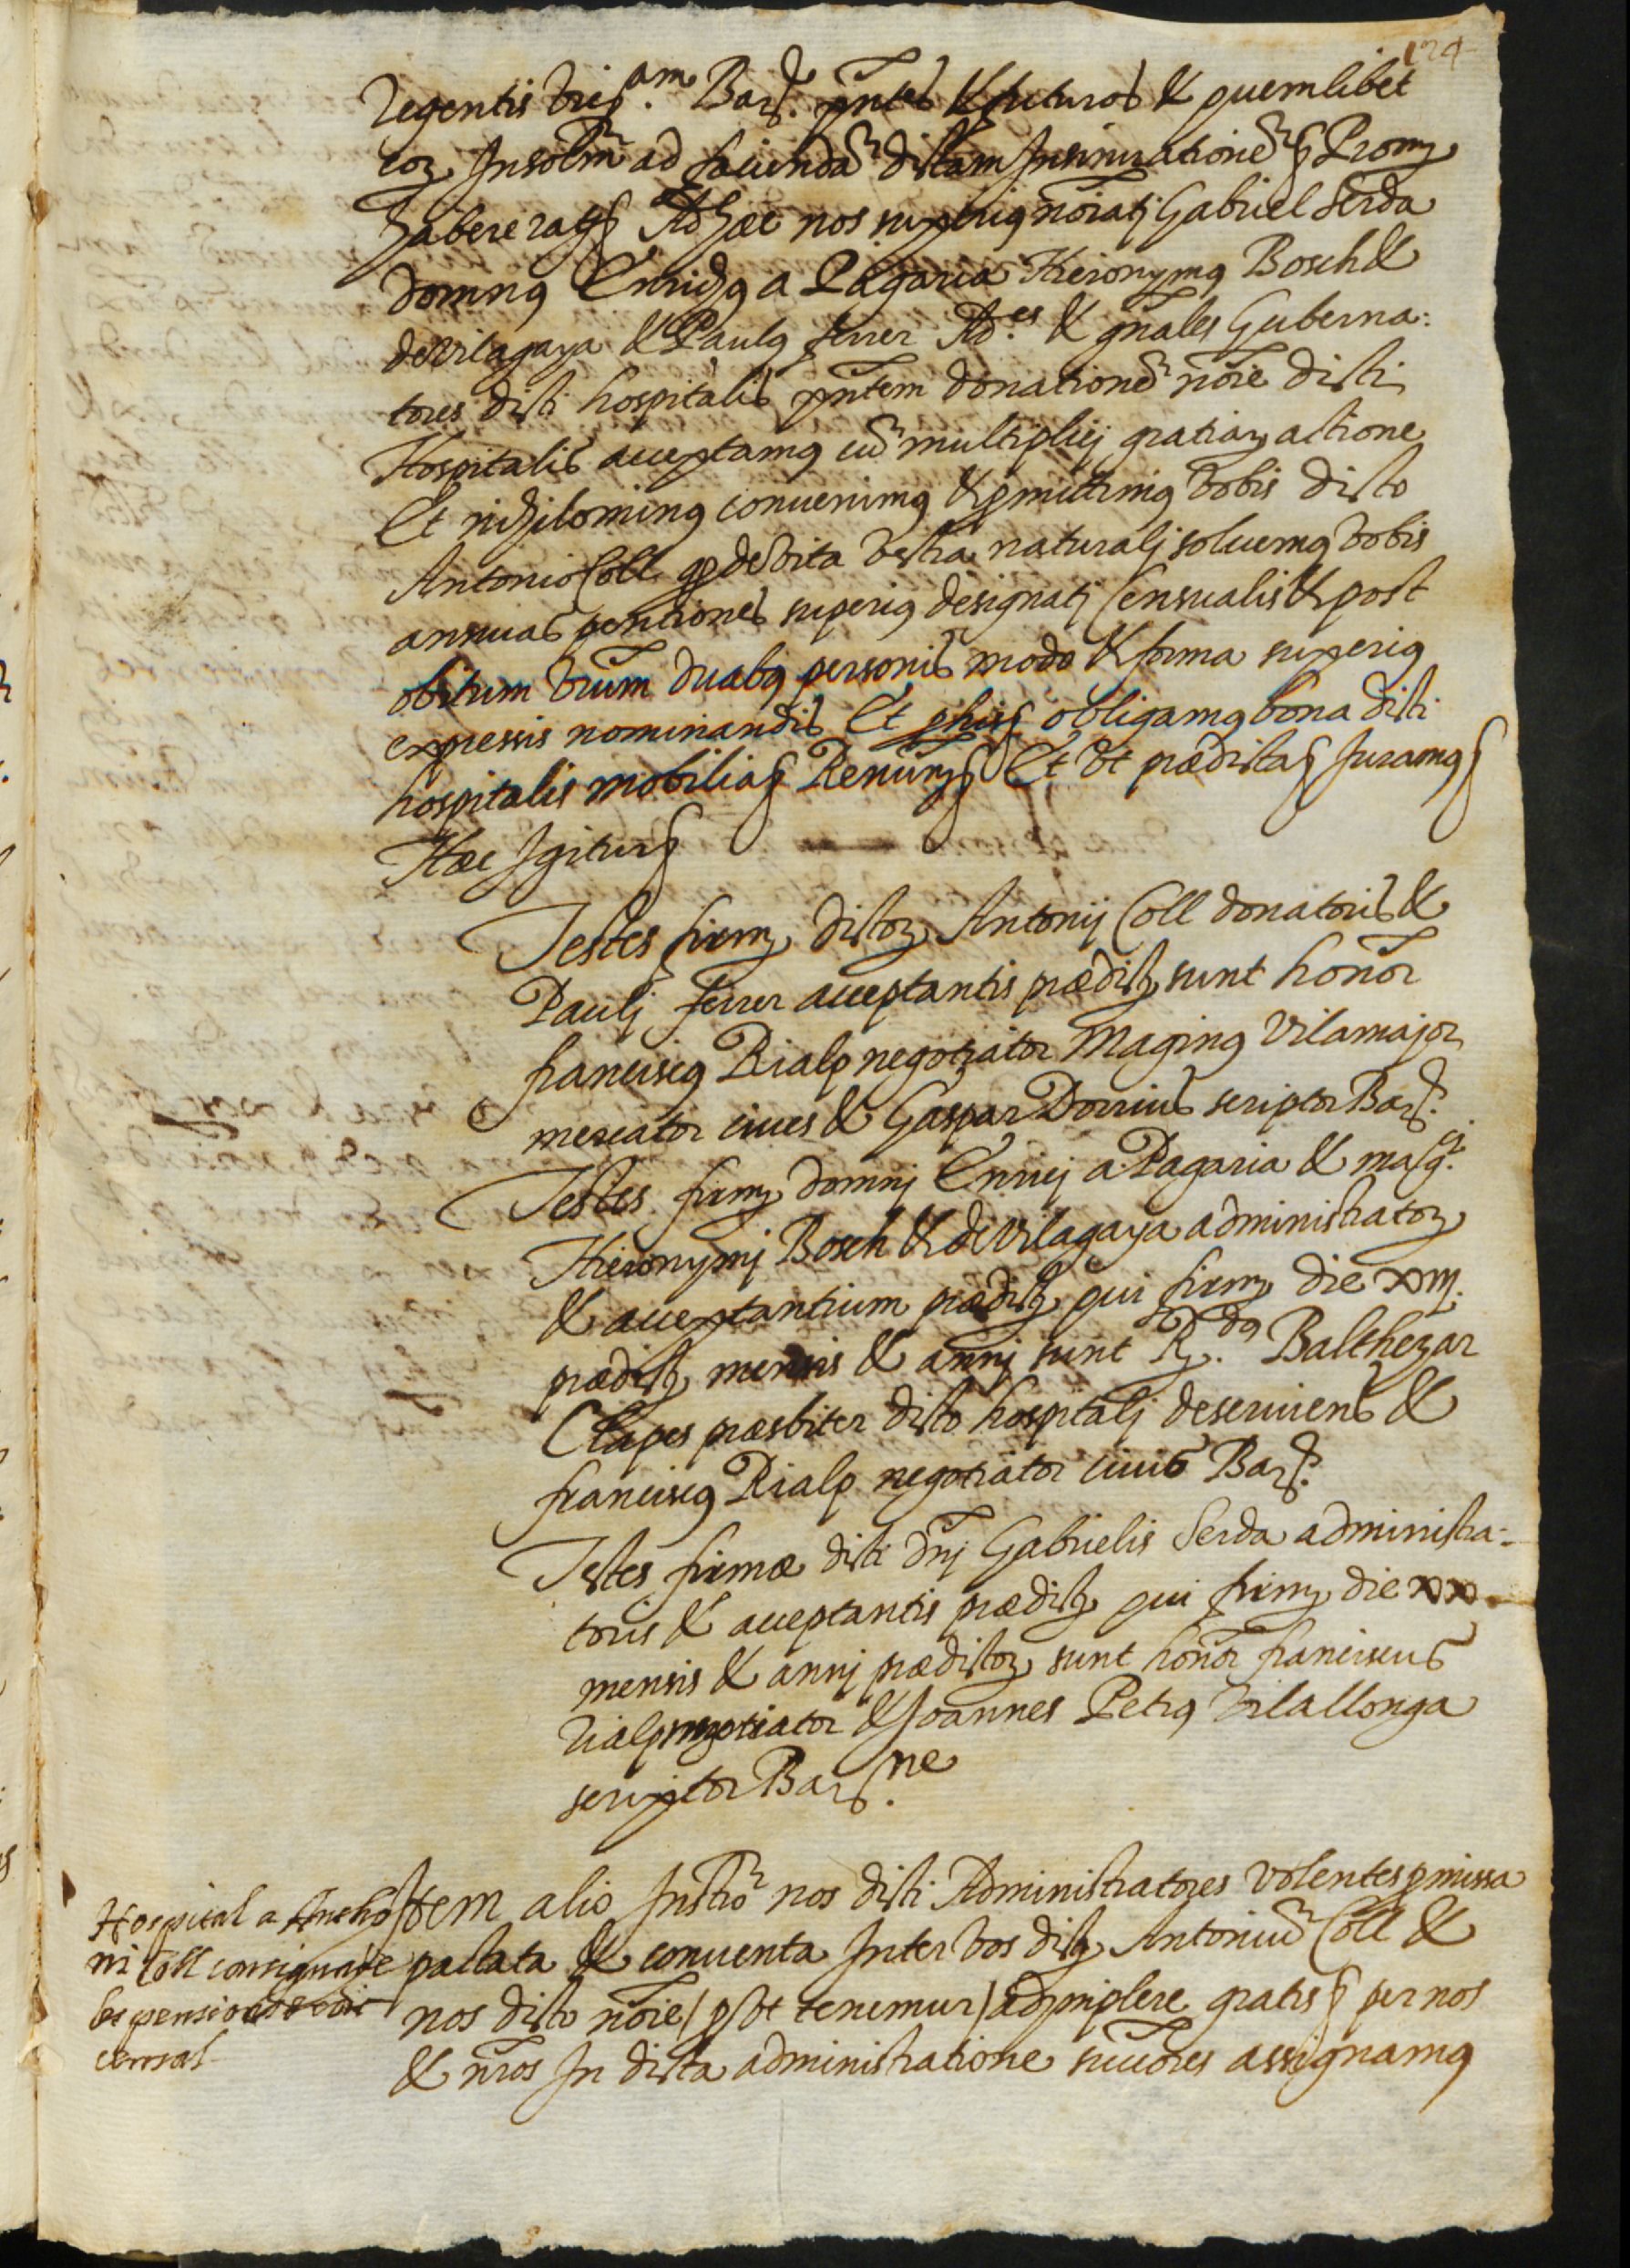 124
regentis vicã.am Barñ. pñtes & futuros & quemlibet
eorȝ Insolm̃ ad faciendã dictam Insinuationẽ § Promȝ
habere ratȝ § Ad hæc nos superiꝰ nõiatj Gabriel Serda
domnꝰ Enriḥꝰ a Pagaria Hieronymꝰ Bosch &
de Vilagaya & Paulꝰ ferrer Ad.es & gñales Guberna:
tores dicti hospitalis pñtem donationẽ nõie dicti
Hospitalis acceptamꝰ cũ multiplicj gratiarȝ actione
Et nihilominꝰ conuenimꝰ & ꝓmittimꝰ vobis dicto
Antonio Coll qd de vita vestra naturalj soluemꝰ vobis
annuas pentiones superiꝰ designatj Censualis & post
obitum vr̃um duabꝰ personis modo & forma superiꝰ
expressis nominandis Et ꝓ his § obligamꝰ bona dicti
hospitalis mobilia § Renũnȝ § Et vt prædicta § Juramꝰ §
Hæc Igitur §
Testes firmȝ dictorȝ Antonij Coll donatoris &
Paulj ferrer acceptantis prædictȝ sunt honõr
franciscꝰ Rialp negotiator Maginꝰ Vilamajor
mercator ciues & Gaspar Dorrius scriptor Barñ.
Testes firmȝ domnj Enricj a Pagaria & magci.
Hieronymj Bosch & de Vilagaya administratorȝ
& acceptantium prædictȝ qui firmȝ die xviij.
prædictȝ mensis & annj sunt R.dꝰ Balthezar
Clapes præsbiter dicto hospitalj deseruiens &
franciscꝰ Rialp negotiator ciuis Barñ.
Testes firmæ dicti dñj Gabrielis Serda administra:
toris & acceptantis prædictȝ qui firmȝ die xx.
mensis & annj prædictorȝ sunt honõr franciscus
Rialp negotiator & Joannes Petrꝰ Vilallonga
scriptor Barñ.ne
Hospital a Antho
ni Coll consignatio de
les pensions de dit
censal
Item alio Instrõ nos dicti Administratores volentes ꝓmissa
pactata & conuenta Inter vos dictȝ Antoniũ Coll &
nos dicto nõie (ꝓut tenemur) adimplere gratis § per nos
& nr̃os In dicta administratione succõres assignamꝰ